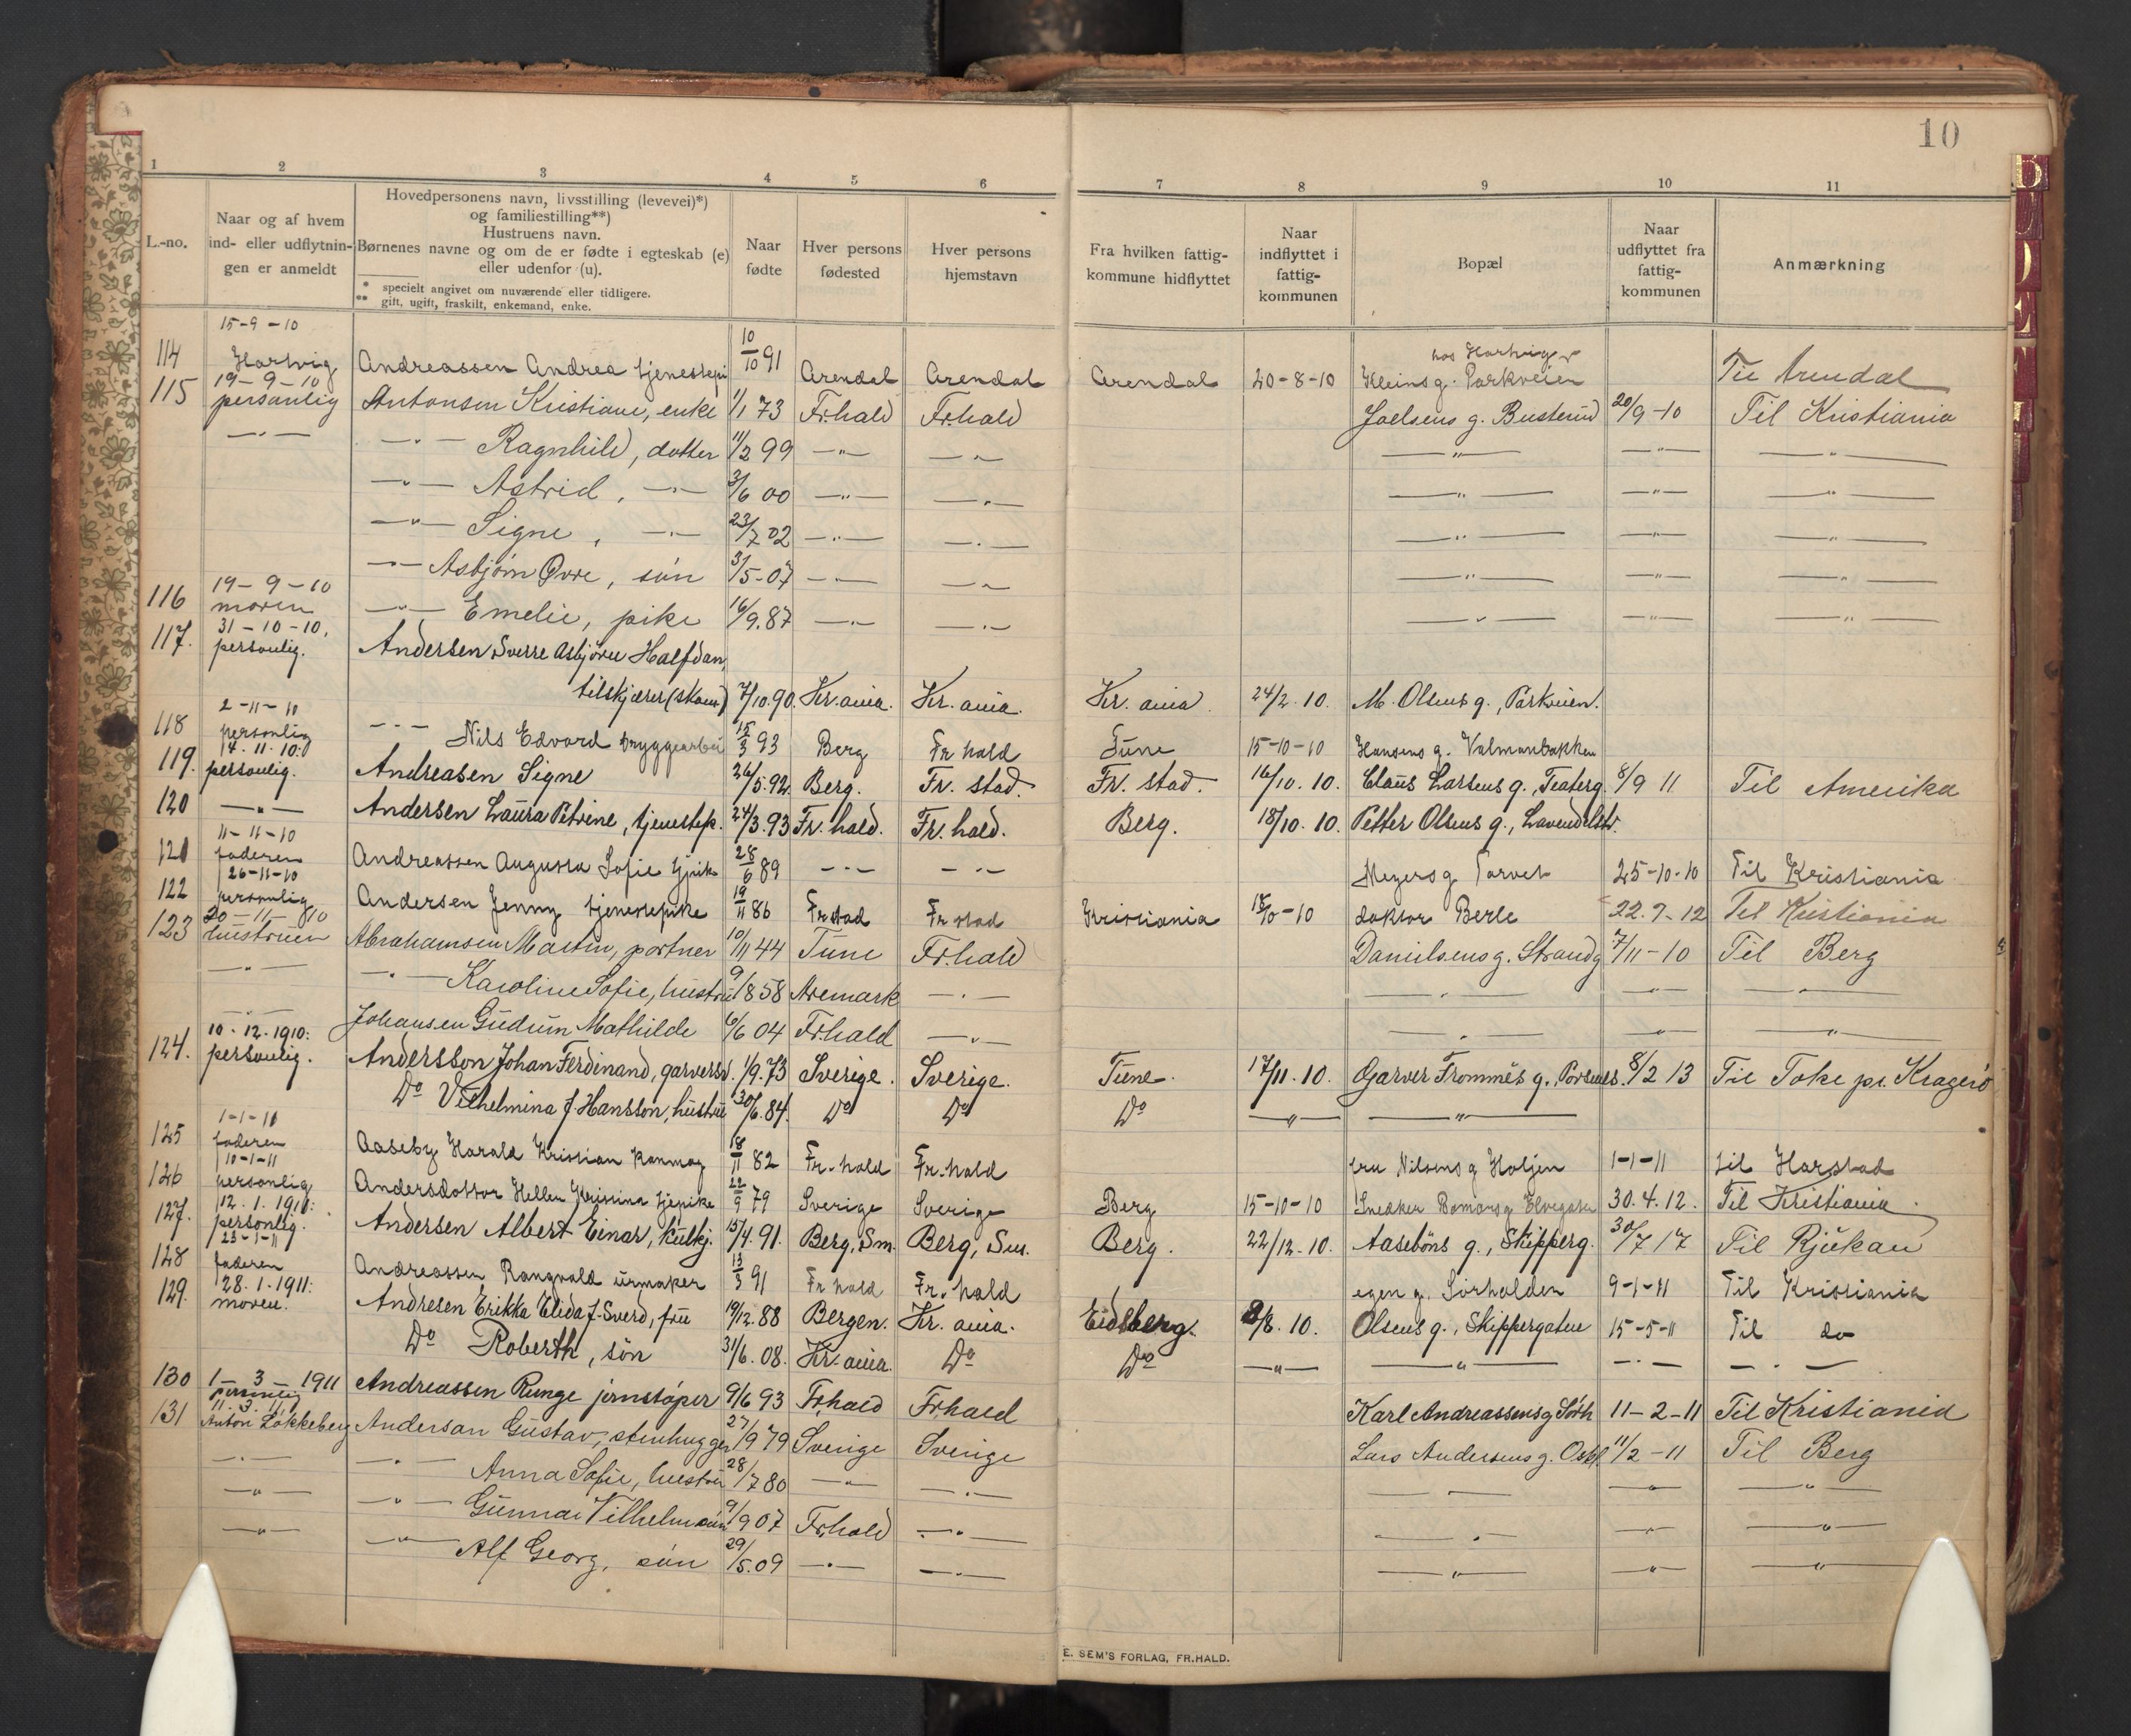 10
1 2 3 4 5 6 7 8 9 10 11
L.-no.
Naar og af hvem
ind- eller udflytnin-
gen er anmeldt
Hovedpersonens navn, livsstilling (levevei)*)
og familiestilling**)
Hustruens navn.
Børnenes navne og om de er fødte i egteskab (e)
eller udenfor (u).
* specielt angivet om nuværende eller tidligere.
** gift, ugift, fraskilt, enkemand, enke.
Naar
fødte
Hver persons
fødested
Hver persons
hjemstavn
Fra hvilken fattig-
kommune hidflyttet
Naar
indflyttet i
fattig-
kommunen
Bopæl
Naar
udflyttet fra
fattig-
kommunen
Anmærkning
15-9-10 hos Hartvig
114 Hartvig Andreassen Andrea tjenestepi 10/10 91 Arendal Arendal Arendal 20-8-10 Kleins g. Parkveien Til Arendal
19-9-10
115 personlig Antonsen Kristiane, enke 1/1 73 Fr.hald Fr.hald Joelsens g. Busterud 20/9-10 Til Kristiania
—"— —"— Ragnhild, datter 11/2 99 —"— —"— —"— —"— —"—
—"— Astrid, —"— 3/6 00 —"— —"— —"— —"— —"—
—"— Signe, —"— 23/7 02 —"— —"— —"— —"— —"—
—"— Asbjørn Øvre, søn 3/5-07 —"— —"— —"— —"— —"—
19-9-10
116 moren —"— Emelie, pike 16/9.87 —"— —"— —"— —"— —"—
31-10-10,
117. personlig. Andersen Sverre Asbjørn Halfdan,
tilskjærer (skom) 7/10.90. Kr.ania. Kr.ania. Kr.ania. 24/2.10. M. Olsens g., Parkveien.
2-11-10
118 personlig —"— Nils Edvard bryggearbei 15/3 93 Berg Fr hald Tune 15-10-10 Hansens g. Valmanbakken
14.11.10:
119. personlig. Andreasen Signe 26/5.92. Berg. Fr. stad. Fr. stad. 16/10.10. Claus Larsens g., Teaterg. 8/9 11 Til Amerika
120 —"— Andersen Laura Petrine, tjenestepk. 24/3.93 Fr. hald. Fr. hald. Berg. 18/10.10. Petter Olsens g., Lavendelstr.
11-11-10
121 faderen Andreassen Augusta Sofie tjpik 28/6 89 —"— —"— Meyers g Torvet 25-10-10 Til Kristiania
26-11-10
122 personlig Andersen Jenny tjenestepike 19/11 86 Fr stad Fr stad Kristiania 18/10-10 doktor Berle 22.7-12 Til Kristiania
20-11-10
123 hustruen Abrahamsen Martin, portner 10/11 44 Tune Fr.hald Danielsens g. Strandg 7/11-10 Til Berg
—"— —"— Karoline Sofie, hustru 9/8 58 Aremark —"— —"— —"— —"—
—"— Johansen Gudrun Mathilde 6/6 04 Fr.hald —"— —"— —"— —"—
10.12.1910:
124. personlig. Andersson Johan Ferdinand, garversv. 1/9.73 Sverige. Sverige. Tune. 17/11.10. Garver Frommes g. Porsnes. 8/2 13 Til Toke pr. Kragerø
Do Vilhelmina f. Hansson, hustru 30/6.84. Do Do Do —"— —"—
1-1-10
125 faderen Aaseby Harald Kristian kanmag 18/11 82 Fr. hald Fr. hald fru Nilsens g Høljen 1-1-11 til Harstad
10-1-11
126 personlig Andersdotter Hellen Kristina tjepike 22/9 79 Sverige Sverige Berg 15-10-10 Snedker Bomans g Elvegaten 30.4.12. Til Kristiania.
12.1.1910:
127. personlig. Andersen Albert Einar, kulkj. 15/4.91. Berg, Sm. Berg, Sm. Berg. 22/12-10. Aasebøns g., Skipperg. 30/7 17 Til Rjukan
23-1-11
128 faderen Andreassen Rangvald urmaker 13/3 91 Fr hald Fr. hald egen g. Sørhalden 9-1-11 Til Kristiania
28.1.1911:
129. moren. Andresen Erikka Elida f. Sverd, fru 19/12.88 Bergen. Kr. ania. Eidsberg. 2/8.10. Olsens g., Skippergaten 15-5-11 Til do
Do Roberth, søn 31/6.08. Kr.ania. Do Do —"— —"— —"— —"—
130 1-3-1911 Andreassen Runge jernstøper 9/6 93 Fr.hald Fr.hald Karl Andreassens g Sørh 11-2-11 Til Kristiania
personlig
11.3.11
131 Anton Løkkeberg Anderson Gustav, stenhugger 27/9 79 Sverige Sverige Lars Andersens g. Oskl. 11/2-11 Til Berg
—"— —"— Anna Sofie, hustru 28/7 80 —"— —"— —"— —"— —"—
—"— —"— Gunnar Vilhelm søn 9/9 07 Fr.hald —"— —"— —"— —"—
—"— —"— Alf Georg, søn 29/5.09 —"— —"— —"— —"— —"—
E. SEM'S FORLAG, FR.HALD.